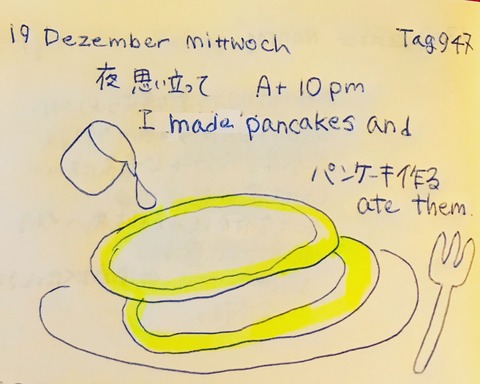 19 Dezember mittwoch Tag947
夜 思い立って At 10 pm
I made pancakes and
パンケーキ作る
ate them.